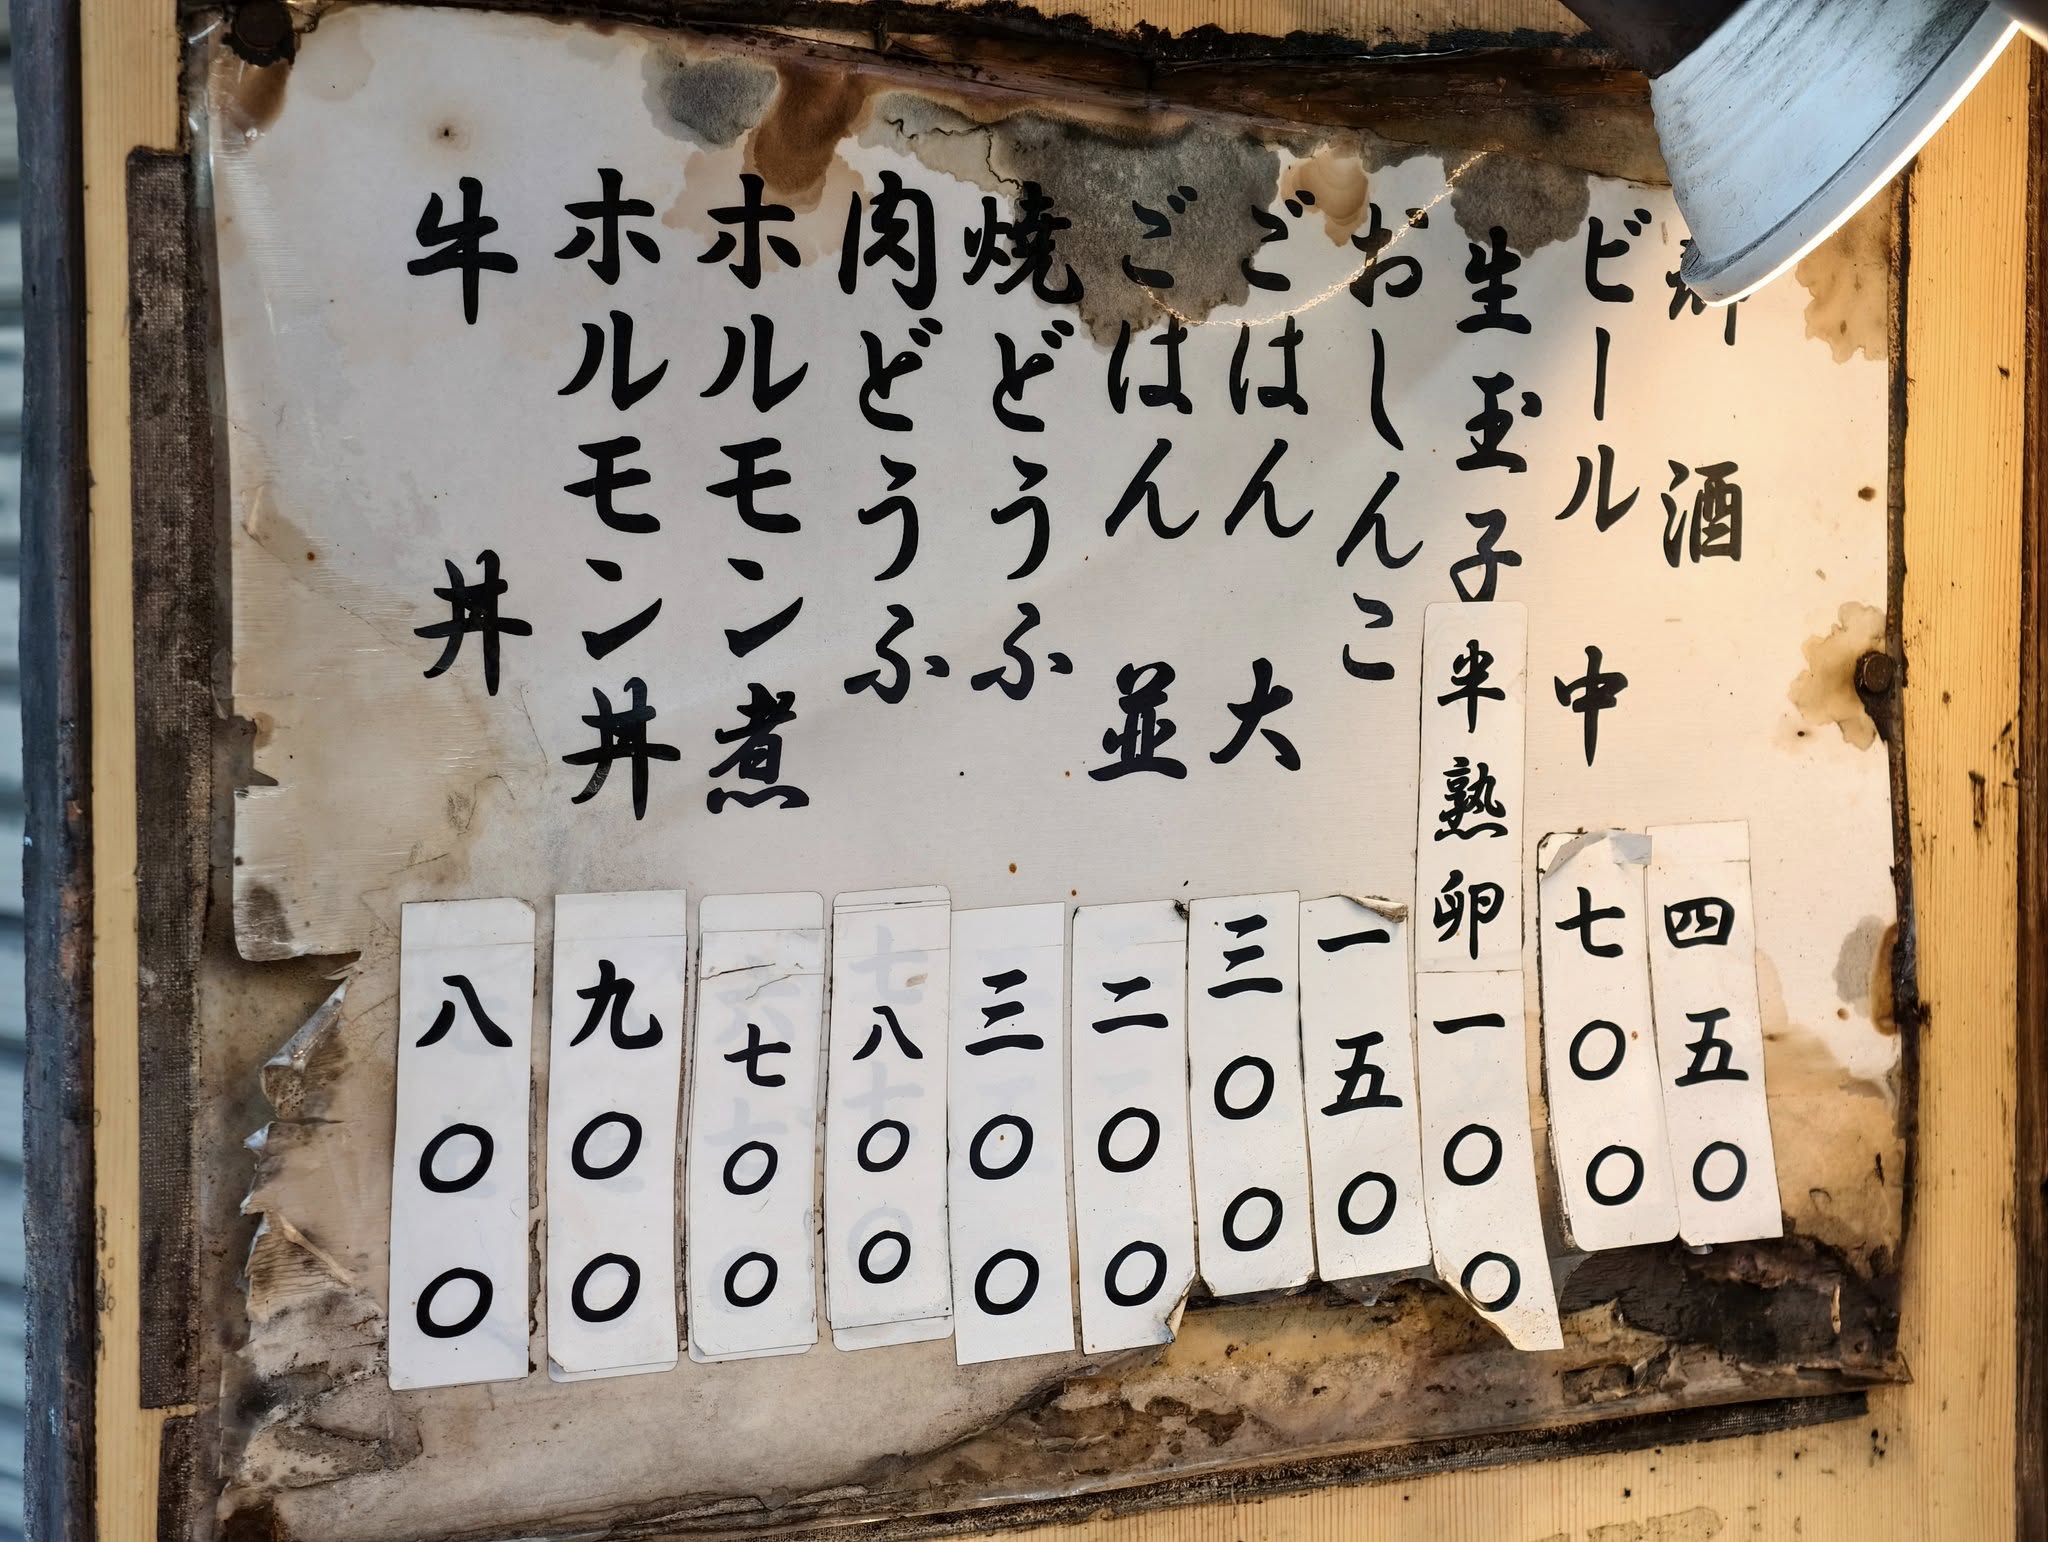 酒 四五〇
ビール 中 七〇〇
生玉子 半熟卵 一〇〇
おしんこ 一五〇
ごはん 大 三〇〇
ごはん 並 二〇〇
焼どうふ 三〇〇
肉どうふ 八〇〇
ホルモン煮 七〇〇
ホルモン丼 九〇〇
牛丼 八〇〇